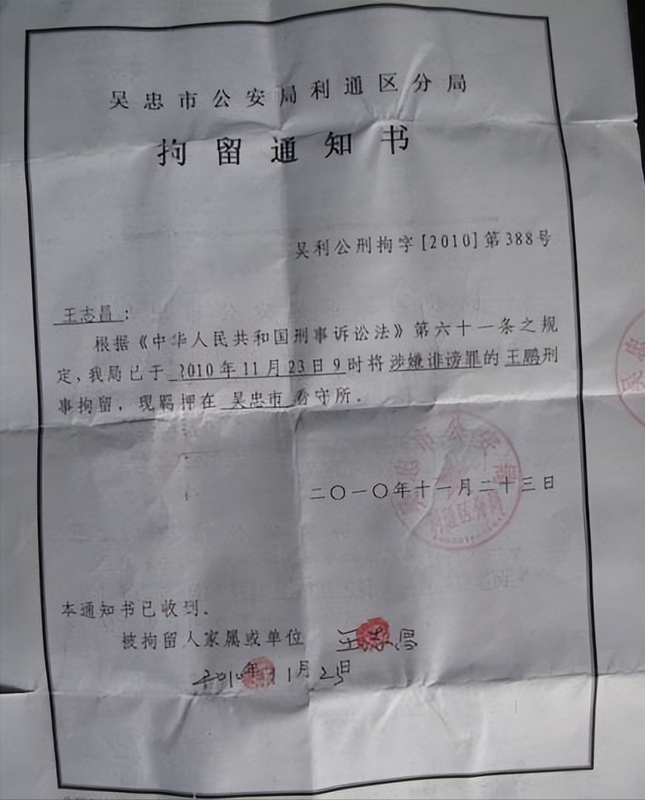 吴忠市公安局利通区分局
拘留通知书
吴利公刑拘字[2010]第388号
王志昌：
根据《中华人民共和国刑事诉讼法》第六十一条之规
定，我局已于 2010年11月23日9时将涉嫌诽谤罪的王鹏刑
事拘留，现羁押在 吴忠市 看守所。
二〇一〇年十一月二十三日
利通区分局
本通知书已收到。
被拘留人家属或单位 王志昌
2010年11月25日